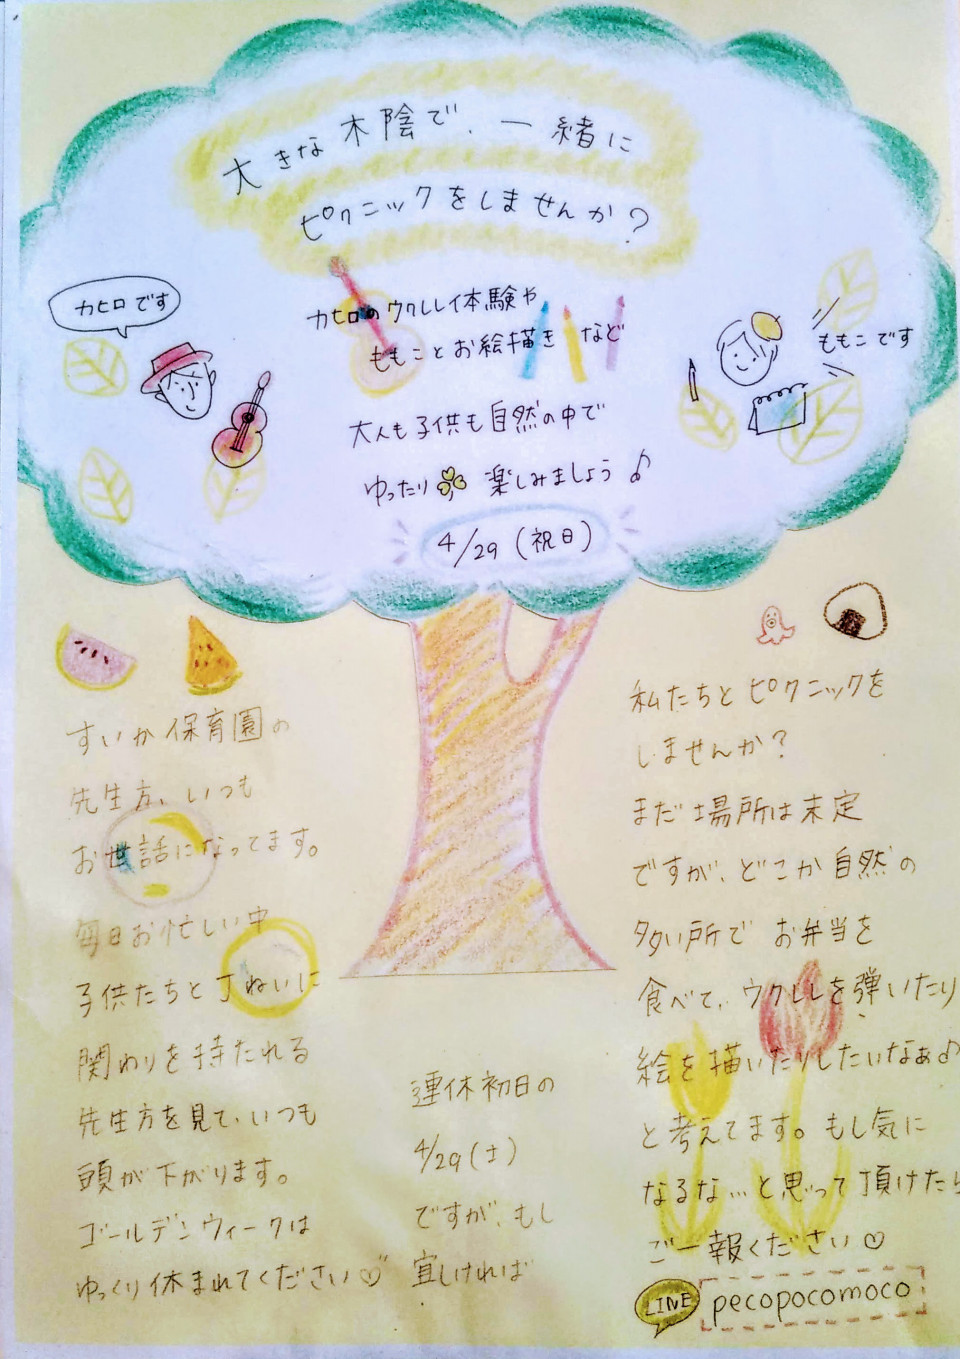 大きな木陰で、一緒に
ピクニックをしませんか?
カヒロです
カヒロのウクレレ体験や
ももことお絵描き など
ももこです
大人も子供も自然の中で
ゆったり 楽しみましょう♪
4/29(祝日)
すいか保育園の
先生方、いつも
お世話になってます。
毎日お忙しい中
子供たちと丁ねいに
関わりを持たれる
先生方を見て、いつも
頭が下がります。
ゴールデンウィークは
ゆっくり休まれてください♡
連休初日の
4/29(土)
ですが、もし
宜しければ
私たちとピクニックを
しませんか?
まだ場所は未定
ですが、どこか自然の
多い所で お弁当を
食べて、ウクレレを弾いたり
絵を描いたりしたいなぁ♪
と考えてます。もし気に
なるな…と思って頂けたら
ご一報ください♡
LINE pecopocomoco